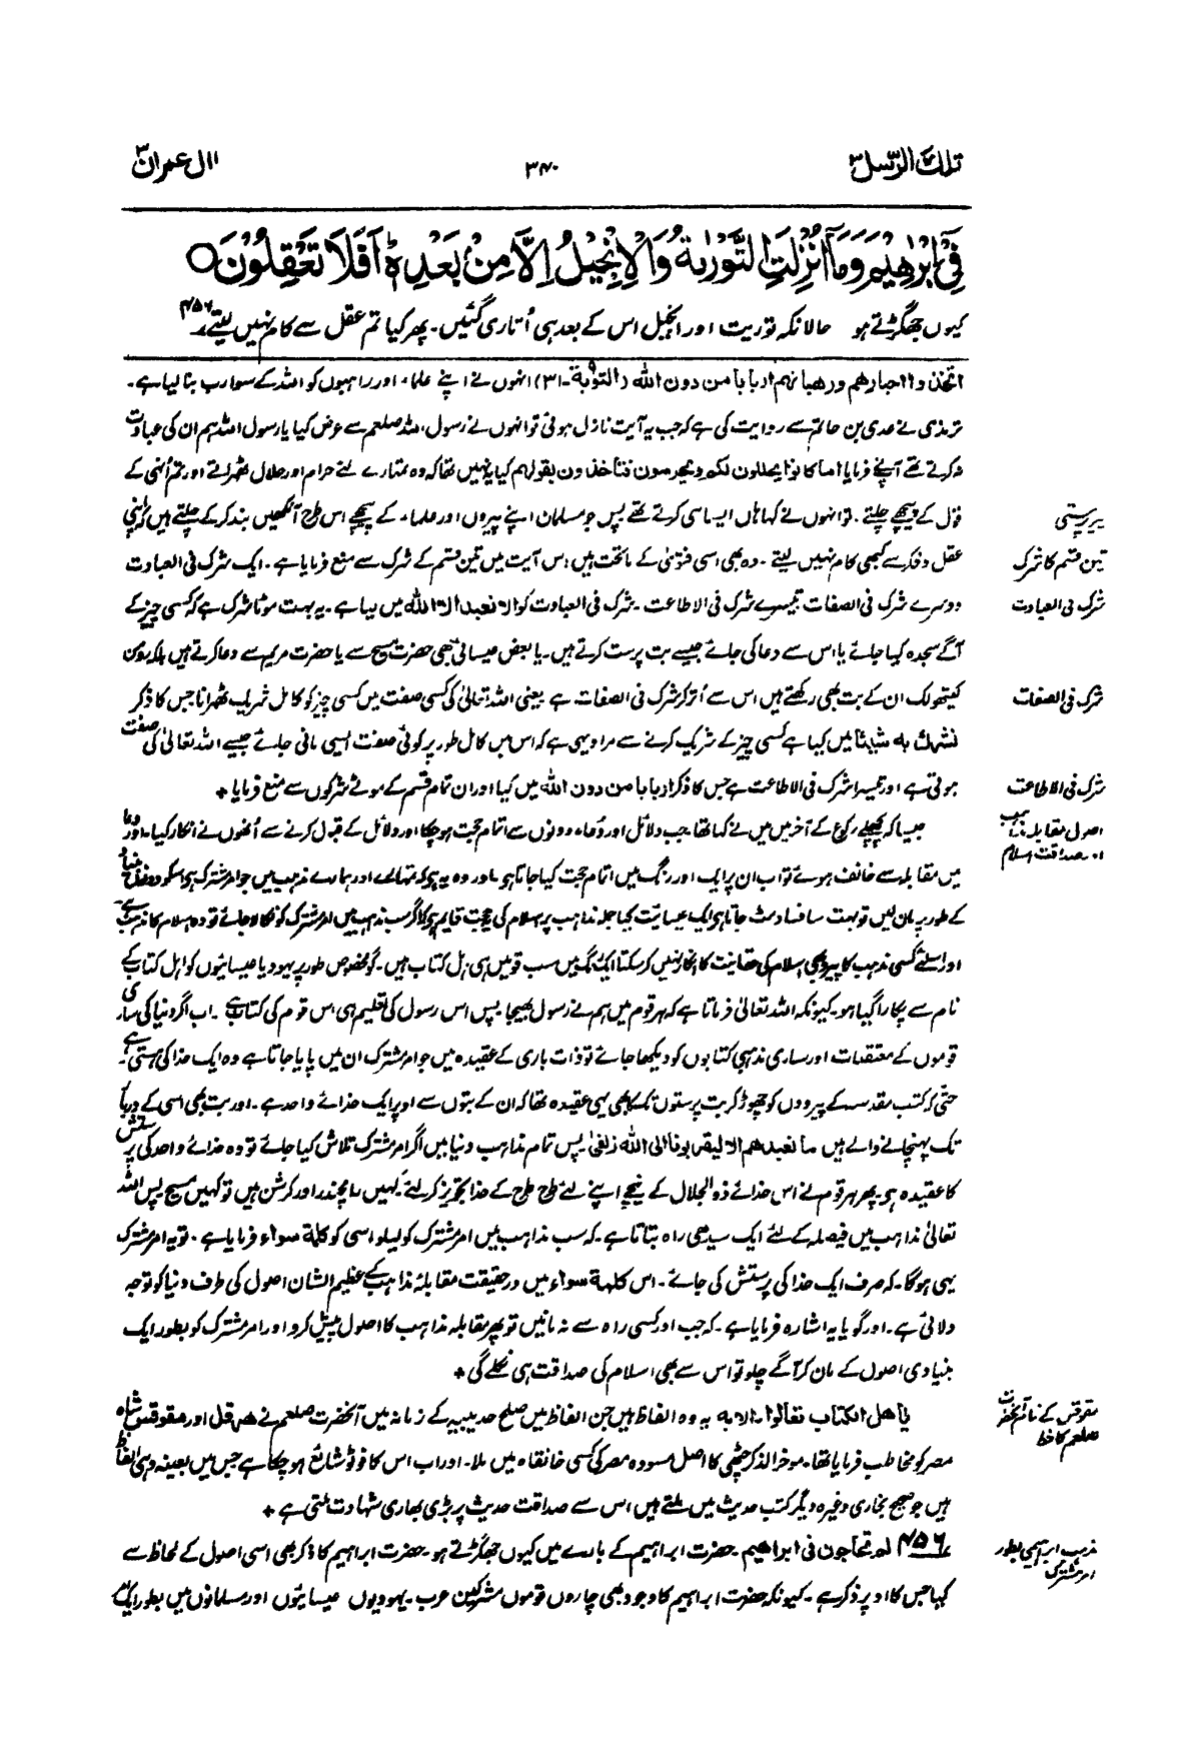 تلك الرّسل ٣
٣٤٠
ال عمران ٣
فِيْٓ اِبْرٰهِيْمَ وَمَآ اُنْزِلَتِ التَّوْرٰىةُ وَالْاِنْجِيْلُ اِلَّا مِنْۢ بَعْدِهٖ ؕ اَفَلَا تَعْقِلُوْنَ ○
کیوں جھگڑتے ہو حالانکہ توریت اور انجیل اس کے بعد ہی اُتاری گئیں۔ پھر کیا تم عقل سے کام نہیں لیتے ۴۵۶
اتخذوا احبارهم ورهبانهم اربابا من دون الله (التوبة۔۳۱) انہوں نے اپنے علماء اور راہبوں کو اللہ کے سوا رب بنا لیا ہے۔
ترمذی نے عدی بن حاتم سے روایت کی ہے کہ جب یہ آیت نازل ہوئی تو انہوں نے رسول اللہ صلعم سے عرض کیا یا رسول اللہ ہم ان کی عبادت
نہ کرتے تھے آپ نے فرمایا اما كانوا يحللون لكم ويحرمون فتأخذون بقولهم کیا یہ نہیں تھا کہ وہ تمہارے لئے حرام اور حلال ٹھہراتے اور تم اُنہی کے
قول کے پیچھے چلتے۔ تو انہوں نے کہا ہاں ایسا ہی کرتے تھے پس جو مسلمان اپنے پیروں اور علماء کے پیچھے اس طرح آنکھیں بند کر کے چلتے ہیں کہ اپنی
پیر پرستی
عقل و فکر سے کبھی کام نہیں لیتے۔ وہ بھی اسی فتویٰ کے ماتحت ہیں اس آیت میں تین قسم کے شرک سے منع فرمایا ہے۔ ایک شرک فی العبادت
تین قسم کا شرک
دوسرے شرک فی الصفات تیسرے شرک فی الاطاعت۔ شرک فی العبادت کو الا نعبد الا الله میں لیا ہے۔ یہ بہت موٹا شرک ہے کہ کسی چیز کے
شرک فی العبادت
آگے سجدہ کیا جائے یا اس سے دعا کی جائے جیسے بت پرست کرتے ہیں۔ یا بعض عیسائی بھی حضرت مسیح سے یا حضرت مریم سے دعا کرتے ہیں بلکہ رومن
کیتھولک ان کے بت بھی رکھتے ہیں اس سے اُتر کر شرک فی الصفات ہے یعنی اللہ تعالیٰ کی کسی صفت میں کسی چیز کو کامل شریک ٹھہرانا جس کا ذکر
شرک فی الصفات
نشرك به شيئا میں کیا ہے کسی چیز کے شریک کرنے سے مراد یہی ہے کہ اس میں کامل طور پر کوئی صفت ایسی مانی جائے جیسے اللہ تعالیٰ کی صفت
ہوتی ہے اور تیسرا شرک فی الاطاعت ہے جس کا ذکر اربابا من دون الله میں کیا اور ان تمام قسم کے موٹے شرکوں سے منع فرمایا *
شرک فی الاطاعت
جیسا کہ پچھلے رکوع کے آخر میں میں نے کہا تھا جب دلائل اور دُعاء دونوں سے اتمام حجت ہو چکا اور دلائل کے قبول کرنے سے اُنھوں نے انکار کیا۔ اور دعا
اصول مقابلہ مذاہب
اور صداقت اسلام
میں مقابلہ سے خائف ہوئے تو اب ان پر ایک اور رنگ میں اتمام حجت کیا جاتا ہے اور وہ یہ ہے کہ تمہارے اور ہمارے مذہب میں جو امر مشترک ہے اسکو بنیاد
کے طور پر مان لیں تو بہت سا فساد مٹ جاتا ہے ایک عیسائیت کیا جملہ مذاہب پر اسلام کی حجت قائم ہو گی اگر سب مذہب میں امر مشترک کو نکالا جائے تو وہ اسلام کا مذہب ہے
اور اسلئے کسی مذہب کا پیرو بھی اسلام کی حقانیت کا انکار نہیں کر سکتا ایک رنگ میں سب قومیں ہی اہل کتاب ہیں۔ گو مخصوص طور پر یہود یا عیسائیوں کو اہل کتاب کے
نام سے پکارا گیا ہو۔ کیونکہ اللہ تعالیٰ فرماتا ہے کہ ہر قوم میں ہم نے رسول بھیجا پس اس رسول کی تعلیم ہی اس قوم کی کتاب ہے۔ اب اگر دنیا کی ساری
قوموں کے معتقدات اور ساری مذہبی کتابوں کو دیکھا جائے تو ذات باری کے عقیدہ میں جو امر مشترک ان میں پایا جاتا ہے وہ ایک خدا کی ہستی ہے۔
حتّٰی کہ کتب مقدسہ کے پیرووں کو چھوڑ کر بت پرستوں تک کا بھی یہی عقیدہ تھا کہ ان کے بتوں سے اوپر ایک خدائے واحد ہے۔ اور بت بھی اسی کے دربار
تک پہنچانے والے ہیں ما نعبدهم الا ليقربونا الى الله زلفى پس تمام مذاہب دنیا میں اگر امر مشترک تلاش کیا جائے تو وہ خدائے واحد کی پرستش
کا عقیدہ ہے پھر ہر قوم نے اس خدائے ذوالجلال کے نیچے اپنے لئے طرح طرح کے خدا تجویز کر لئے۔ کہیں رامچندر اور کرشن ہیں تو کہیں مسیح پس اللہ
تعالیٰ مذاہب میں فیصلہ کے لئے ایک سیدھی راہ بتاتا ہے۔ کہ سب مذاہب میں امر مشترک کو لیلو اسی کو كلمة سواء فرمایا ہے۔ تو یہ امر مشترک
یہی ہوگا۔ کہ صرف ایک خدا کی پرستش کی جائے۔ اس كلمة سواء میں درحقیقت مقابلہ مذاہب کے عظیم الشان اصول کی طرف دنیا کو توجہ
دلائی ہے۔ اور گویا یہ اشارہ فرمایا ہے۔ کہ جب اور کسی راہ سے نہ مانیں تو پھر مقابلہ مذاہب کا اصول پیش کرو اور امر مشترک کو بطور ایک
بنیادی اصول کے مان کر آگے چلو تو اس سے بھی اسلام کی صداقت ہی نکلے گی *
یا اهل الكتاب تعالوا۔ الآیہ یہ وہ الفاظ ہیں جن الفاظ میں صلح حدیبیہ کے زمانہ میں آنحضرت صلعم نے هرقل اور مقوقس شاہ
مقوقس کے نام آنحضرت
صلعم کا خط
مصر کو مخاطب فرمایا تھا۔ موخر الذکر چٹھی کا اصل مسودہ مصر کی کسی خانقاہ میں ملا۔ اور اب اس کا فوٹو شائع ہو چکا ہے جس میں بعینہ وہی الفاظ
ہیں جو صحیح بخاری وغیرہ دیگر کتب حدیث میں ملتے ہیں اس سے صداقت حدیث پر بڑی بھاری شہادت ملتی ہے *
۴۵۶ لم تحاجون فی ابراهیم۔ حضرت ابراہیم کے بارے میں کیوں جھگڑتے ہو۔ حضرت ابراہیم کا ذکر بھی اسی اصول کے لحاظ سے
مذہب ابراہیمی بطور
امر مشترک
کیا جس کا اوپر ذکر ہے۔ کیونکہ حضرت ابراہیم کا وجود بھی چاروں قوموں مشرکین عرب۔ یہودیوں عیسائیوں اور مسلمانوں میں بطور ایک